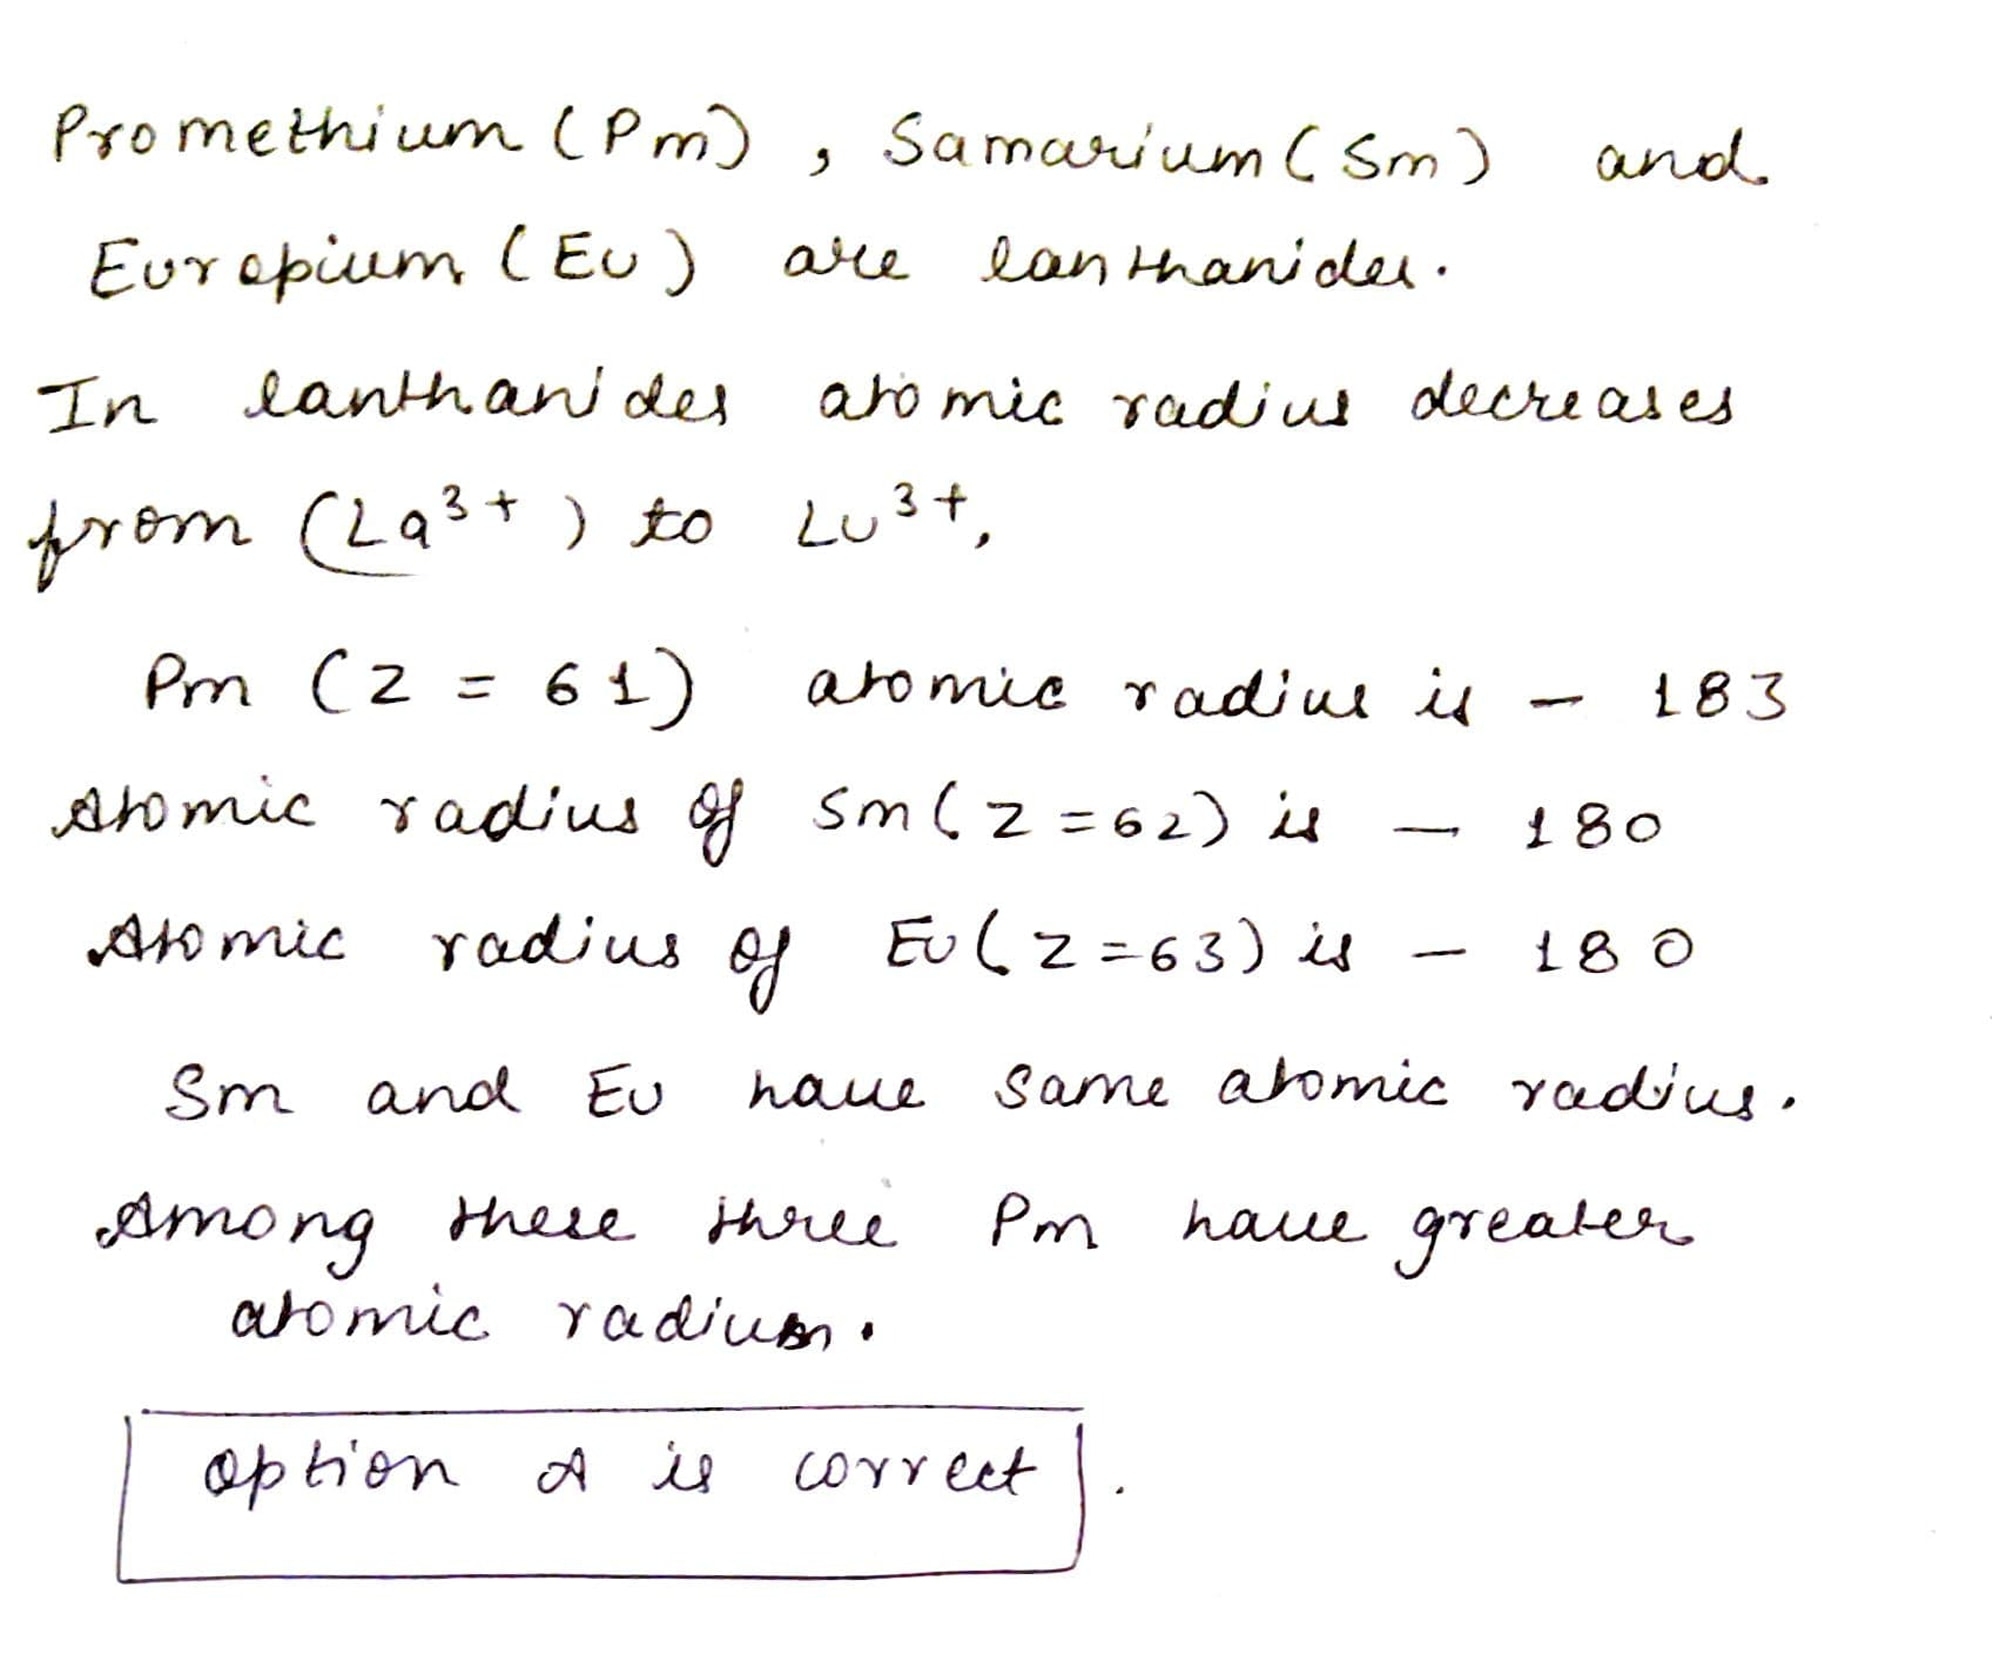 Promethium (Pm), Samarium (Sm) and
Europium (Eu) are lanthanides.
In lanthanides atomic radius decreases
from (La³⁺) to Lu³⁺,
Pm (Z = 61) atomic radius is - 183
Atomic radius of Sm (Z = 62) is - 180
Atomic radius of Eu (Z = 63) is - 180
Sm and Eu have same atomic radius.
Among these three Pm have greater
atomic radius.
option A is correct.